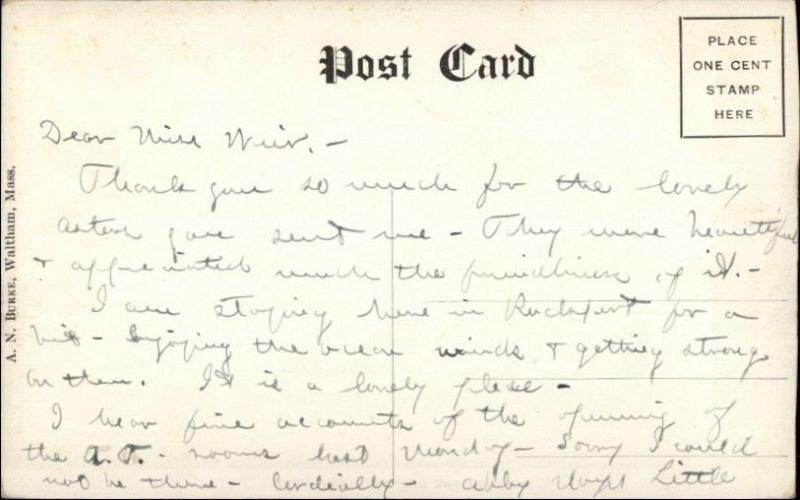 Post Card
PLACE
ONE CENT
STAMP
HERE
A. N. BURKE, Waltham, Mass.
Dear Miss Weir. -
Thank you so much for the lovely
asters you sent me - They were beautiful
& appreciated much the friendliness of it. -
I am staying here in Rockport for a
bit - enjoying the ocean winds & getting strong
on them. It is a lovely place -
I hear fine accounts of the opening of
the A.T. - rooms last Monday - Sorry I could
not be there - Cordially - Abby Hoyt Little